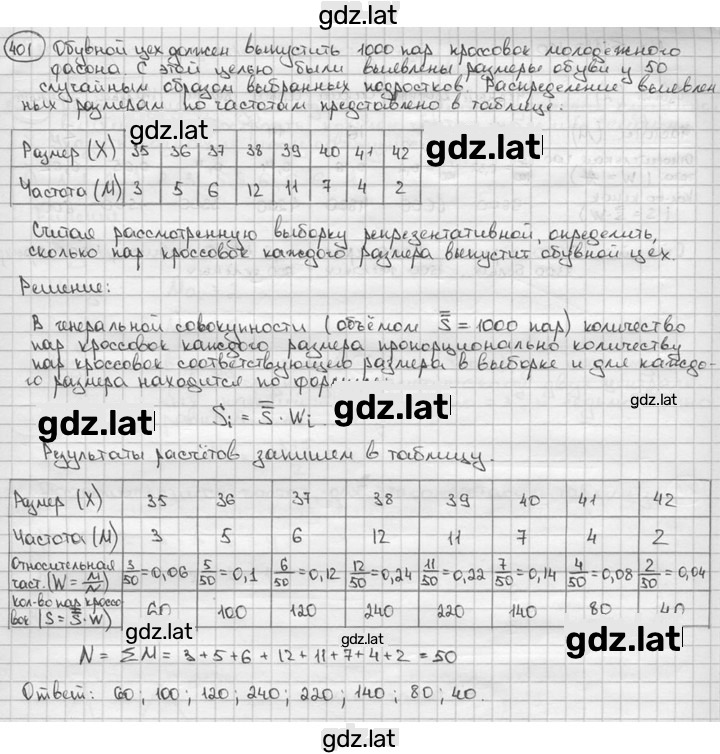 gdz.lat
401 Обувной цех должен выпустить 1000 пар кроссовок молодёжного
фасона. С этой целью были выявлены размеры обуви у 50
случайным образом выбранных подростков. Распределение выявлен
ных размерам по частотам представлено в таблице:
gdz.lat
Размер (X) 35 36 37 38 39 40 41 42
gdz.lat
Частота (M) 3 5 6 12 11 7 4 2
Считая рассмотренную выборку репрезентативной, определить,
сколько пар кроссовок каждого размера выпустит обувной цех.
Решение:
В генеральной совокупности (объёмом S̿ = 1000 пар) количество
пар кроссовок каждого размера пропорционально количеству
пар кроссовок соответствующего размера в выборке и для каждо-
го размера находится по
gdz.lat
gdz.lat
gdz.lat
Si = S̿ · Wi
Результаты расчётов запишем в таблицу.
Размер (X) 35 36 37 38 39 40 41 42
Частота (M) 3 5 6 12 11 7 4 2
Относительная
част. (W = M/N) 3/50=0,06 5/50=0,1 6/50=0,12 12/50=0,24 11/50=0,22 7/50=0,14 4/50=0,08 2/50=0,04
кол-во пар кроссо
вок (S = S̿·W) 60 100 120 240 220 140 80 40
gdz.lat
gdz.lat
gdz.lat
N = ΣM = 3+5+6+12+11+7+4+2 = 50
Ответ: 60; 100; 120; 240; 220; 140; 80; 40.
gdz.lat